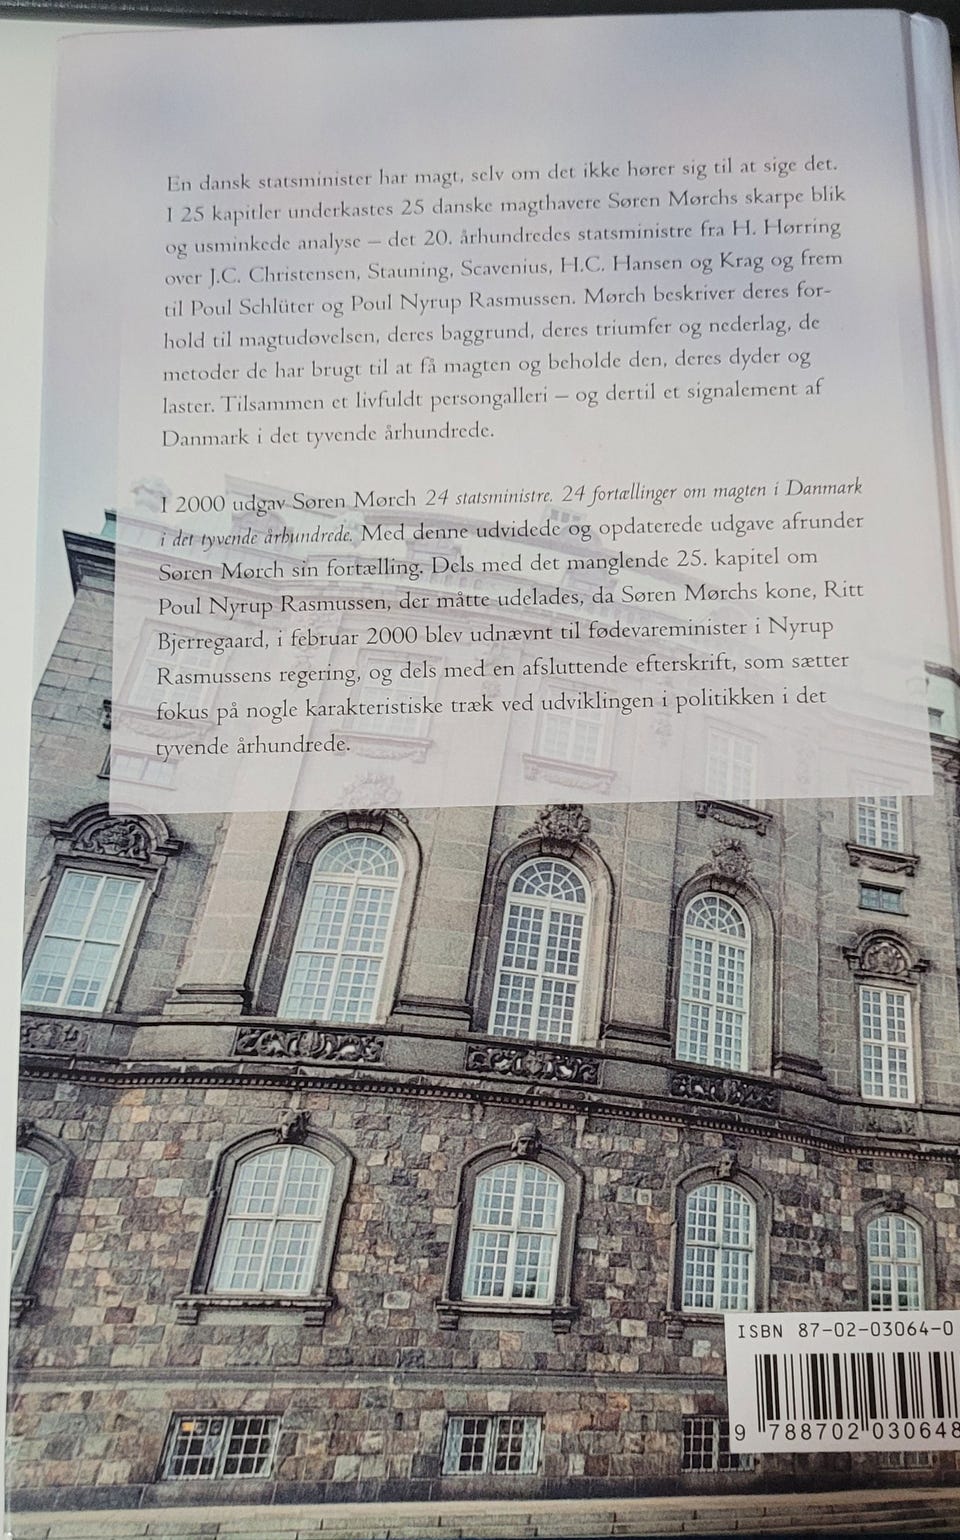 En dansk statsminister har magt, selv om det ikke hører sig til at sige det.
I 25 kapitler underkastes 25 danske magthavere Søren Mørchs skarpe blik
og usminkede analyse – det 20. århundredes statsministre fra H. Hørring
over J.C. Christensen, Stauning, Scavenius, H.C. Hansen og Krag og frem
til Poul Schlüter og Poul Nyrup Rasmussen. Mørch beskriver deres for-
hold til magtudøvelsen, deres baggrund, deres triumfer og nederlag, de
metoder de har brugt til at få magten og beholde den, deres dyder og
laster. Tilsammen et livfuldt persongalleri – og dertil et signalement af
Danmark i det tyvende århundrede.
I 2000 udgav Søren Mørch 24 statsministre. 24 fortællinger om magten i Danmark
i det tyvende århundrede. Med denne udvidede og opdaterede udgave afrunder
Søren Mørch sin fortælling. Dels med det manglende 25. kapitel om
Poul Nyrup Rasmussen, der måtte udelades, da Søren Mørchs kone, Ritt
Bjerregaard, i februar 2000 blev udnævnt til fødevareminister i Nyrup
Rasmussens regering, og dels med en afsluttende efterskrift, som sætter
fokus på nogle karakteristiske træk ved udviklingen i politikken i det
tyvende århundrede.
ISBN 87-02-03064-0
9 788702 030648